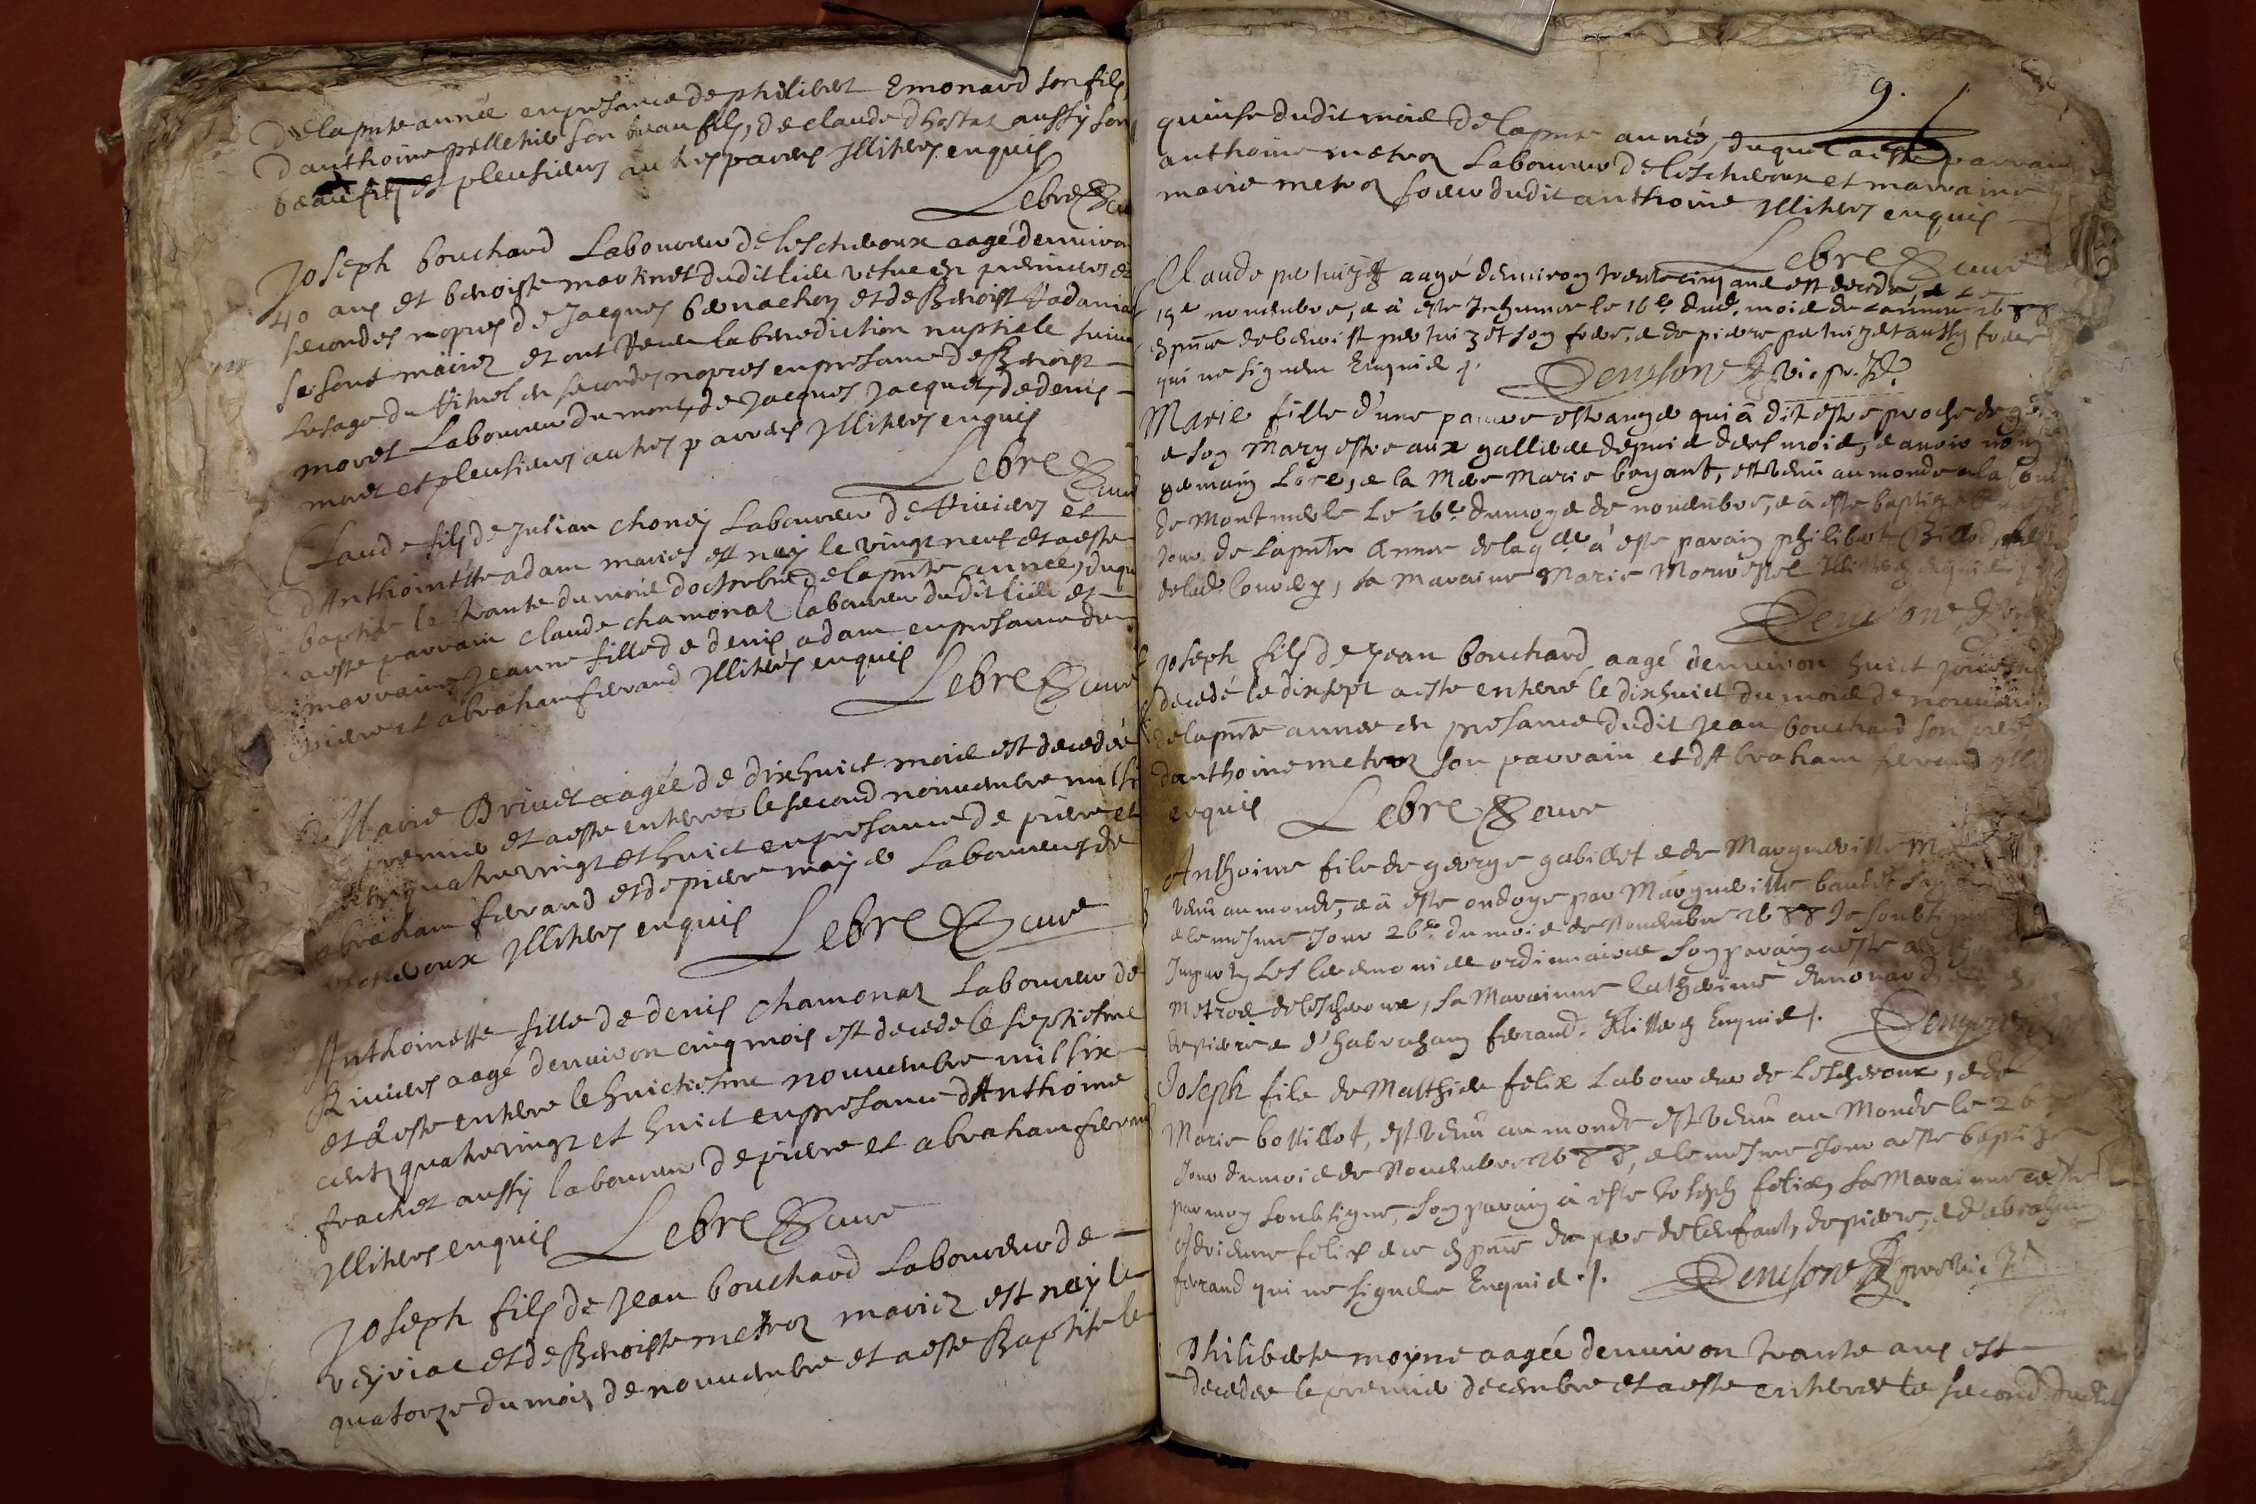 De la pnte année en presance de philibert Emonard son fils
danthoine pelletie son beau fils, de claude dhostat aussy son
beau fils et pleusieurs autres parens Illitéres enquis
Lebre Cure
Joseph bouchard Laboureur de leschéroux aagé denuiron
40 ans et benoiste martinet dudit lieu vefue en premieres et
secondes nopces de Jacques benachon et de Benoist
se sont mariez et ont Receu la benediction nuptiale suiuant
lusage du Rituel en secondes nopces en presance de Benoist
moret Laboureur du mont, de Jacques Jacquet, de denis
moret et pleusieurs autres parens Illitéres enquis
Lebre Cure
Claude fils de Julian chonéy Laboureur de Riuiers et
dAnthoinette adam mariés est nay le vingt neuf et a esté
baptisé le trante du mois doctobre de la pnte année, duquel
a esté parrain claude chamonaz laboureur dudit lieu et
marraine Jeanne fille de denis adam en presance de
pierre et abraham feraud Illitéres enquis
Lebre Cure
Marie Briuet aagée de dixhuict mois est decedée
premier et a esté enterée le second nouuembre mil six
cent quatre vingt et huict en presance de pierre et
abraham feraud et de pierre Laboureurs de
leschéroux Illitéres enquis Lebre Cure
Anthoinette fille de denis chamonaz Laboureur de
Riuiers aagé denuiron cinq mois est decede le septiesme
et a esté enterée le huictiesme nouuembre mil six
cent quatre vingt et huict en presance dAnthoine
frachet aussy laboureur de pierre et abraham feraud
Illitéres enquis Lebre Cure
Joseph fils de Jean bouchard Laboureur de
veyriat et de Benoiste metroz mariez est nay le
quatorze du mois de nouuembre et a esté Baptisé le
9.
quinse dudit mois de la pnte année, duquel a esté parrain
anthoine metroz Laboureur de leschéroux et marraine
marie metroz soeur dudit anthoine Illitéres enquis
Lebre Cure
Claude aagé denuiron trente cinq ans est decedé le
15e nouembre, e à esté Inhumée le 16e dud. mois de l'année 1688
en pnce de benoist son frere, e de piere aussy frere
qui ne signent Enquis
Marie fille d'une pauure estrangere qui à dit estre proche de
e son Mary estre aux galleres depuis mois, e auoir nom
germain Lore, e la Mere Marie bryant, est venu au monde a la
de Montmerle Le 16e du moys de nouembre, e à esté baptizée
Jour de la pnte Année de laqlle à esté parain philibert
sa Maraine Marie
Joseph fils de Jean bouchard aagé denuiron huict jours
decedé le dixsept a esté enteré le dixhuict du mois de nouuembre
de la pnte année en presance dudit Jean bouchard son pere
danthoine metroz son parrain et dAbraham feraud
enquis Lebre Cure
Anthoine fils de george gabillet e de Margueritte
venu au monde, e à esté ondoye par Margueritte
e le mesme Jour 26e du mois de Nouembre 1688 Je soubsigné
Les ceremonies ordinaires son parain a esté
Metroz de lescheroux, sa Maraine Catherine emonard
de piere e d'habraham feraud. Enquis
Joseph fils de Matthieu felix Laboureur de Lescheroux, e de
Marie bosillot, est venu au monde est venu au Monde le 26
Jour du mois de Nouembre 1688, e le mesme Jour a esté baptizé
par moy soubsigné, son parain à esté Joseph felix, sa Maraine
felix e ce en pnce du pere de l'enfant, de piere, e d'abraham
feraud qui ne signent Enquis
Philiberte moyne aagée denuiron trante ans est
decedée le premier decembre et a esté enterée le second dudit